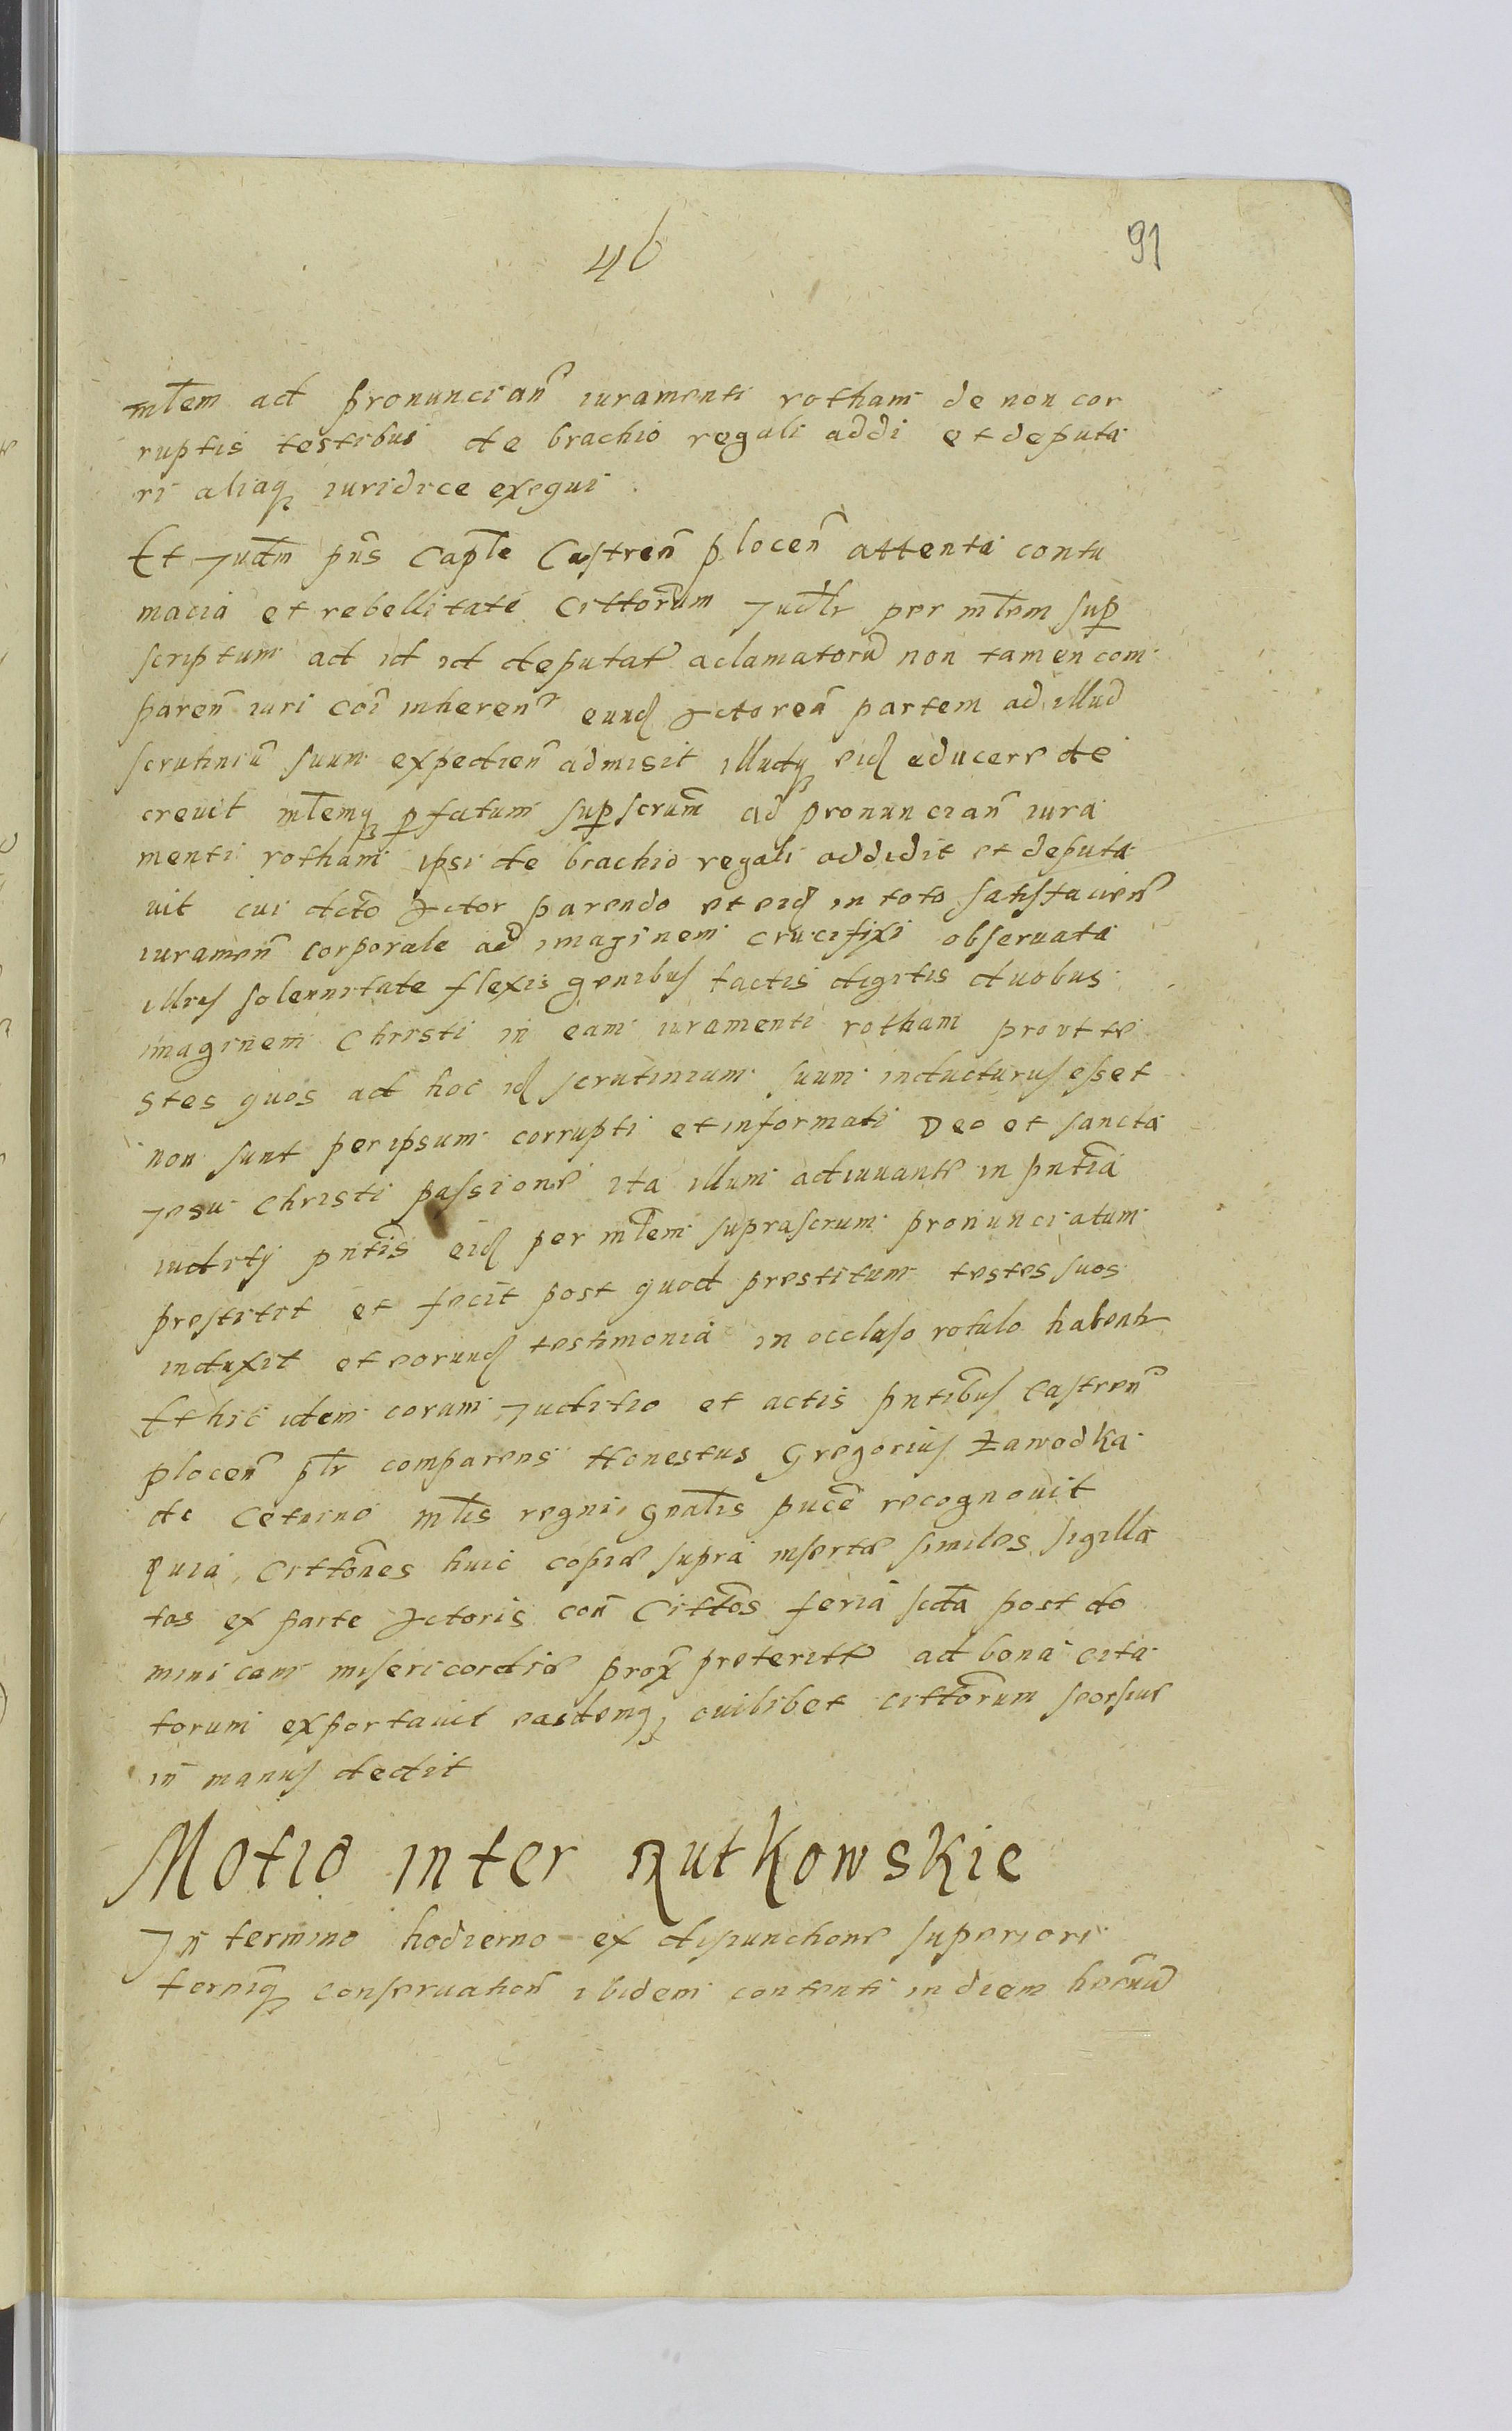 46
91
mlem ad pronuncian̄ iuramenti rotham de non cor
ruptis testibus de brachio regali addi et deputa
ri aliaq iuridice exequi
Et Judm pn̄s Caple Castren̄ plocen̄ attenta contu
macia et rebellitate Cittorum Judlr per mlem sup
scriptum ad id id deputat aclamatorū non tamen com
paren̄ iuri coī inheren̄ eund Actorea partem ad illud
scrutiniū suum expedien̄ admisit illudq eid aducere de
creuit mlemq pfatum supscrum ad pronuncian̄ iura
menti rotham ipsi de brachio regali addidit et deputa
uit cui dcto Actor parendo et eid in toto satisfacien̄
iuramen̄ corporale ad imaginem crucifixi obseruata
illius solennitate flexis genibus tactis digitis duobus
imaginem Christi in eam iuramenti rotham prout te
stes quos ad hoc id scrutinium suum inducturus esset
non sunt per ipsum corrupti et informati Deo et sancta
Jesu Christi passione ita illum adiuuante in pntia
iuditij pntis eid per mlem suprascrum pronunciatum
prestitit et fecit post quod prestitum testes suos
induxit et eorund testimonia in occluso rotulo habent
Et hic idem coram Juditio et actis pntibus Castren̄
plocen̄ plr comparens Honestus Gregorius Zawodka
de Cetnino mlis regni gnalis puce recognouit
quia Cittones huic copiæ supra insertæ similes sigilla
tas ex parte Actoris con̄ Cittos feria scda post do
minicam misericordiæ prox preterite ad bona cita
torum exportauit easdemq cuilibet cittorum seorsiue
in manus dedit
Motio inter Rutkowskie
In termino hodierno ex disiunctione superiori
tereiq conseruation̄ ibidem contenti in diem hernū